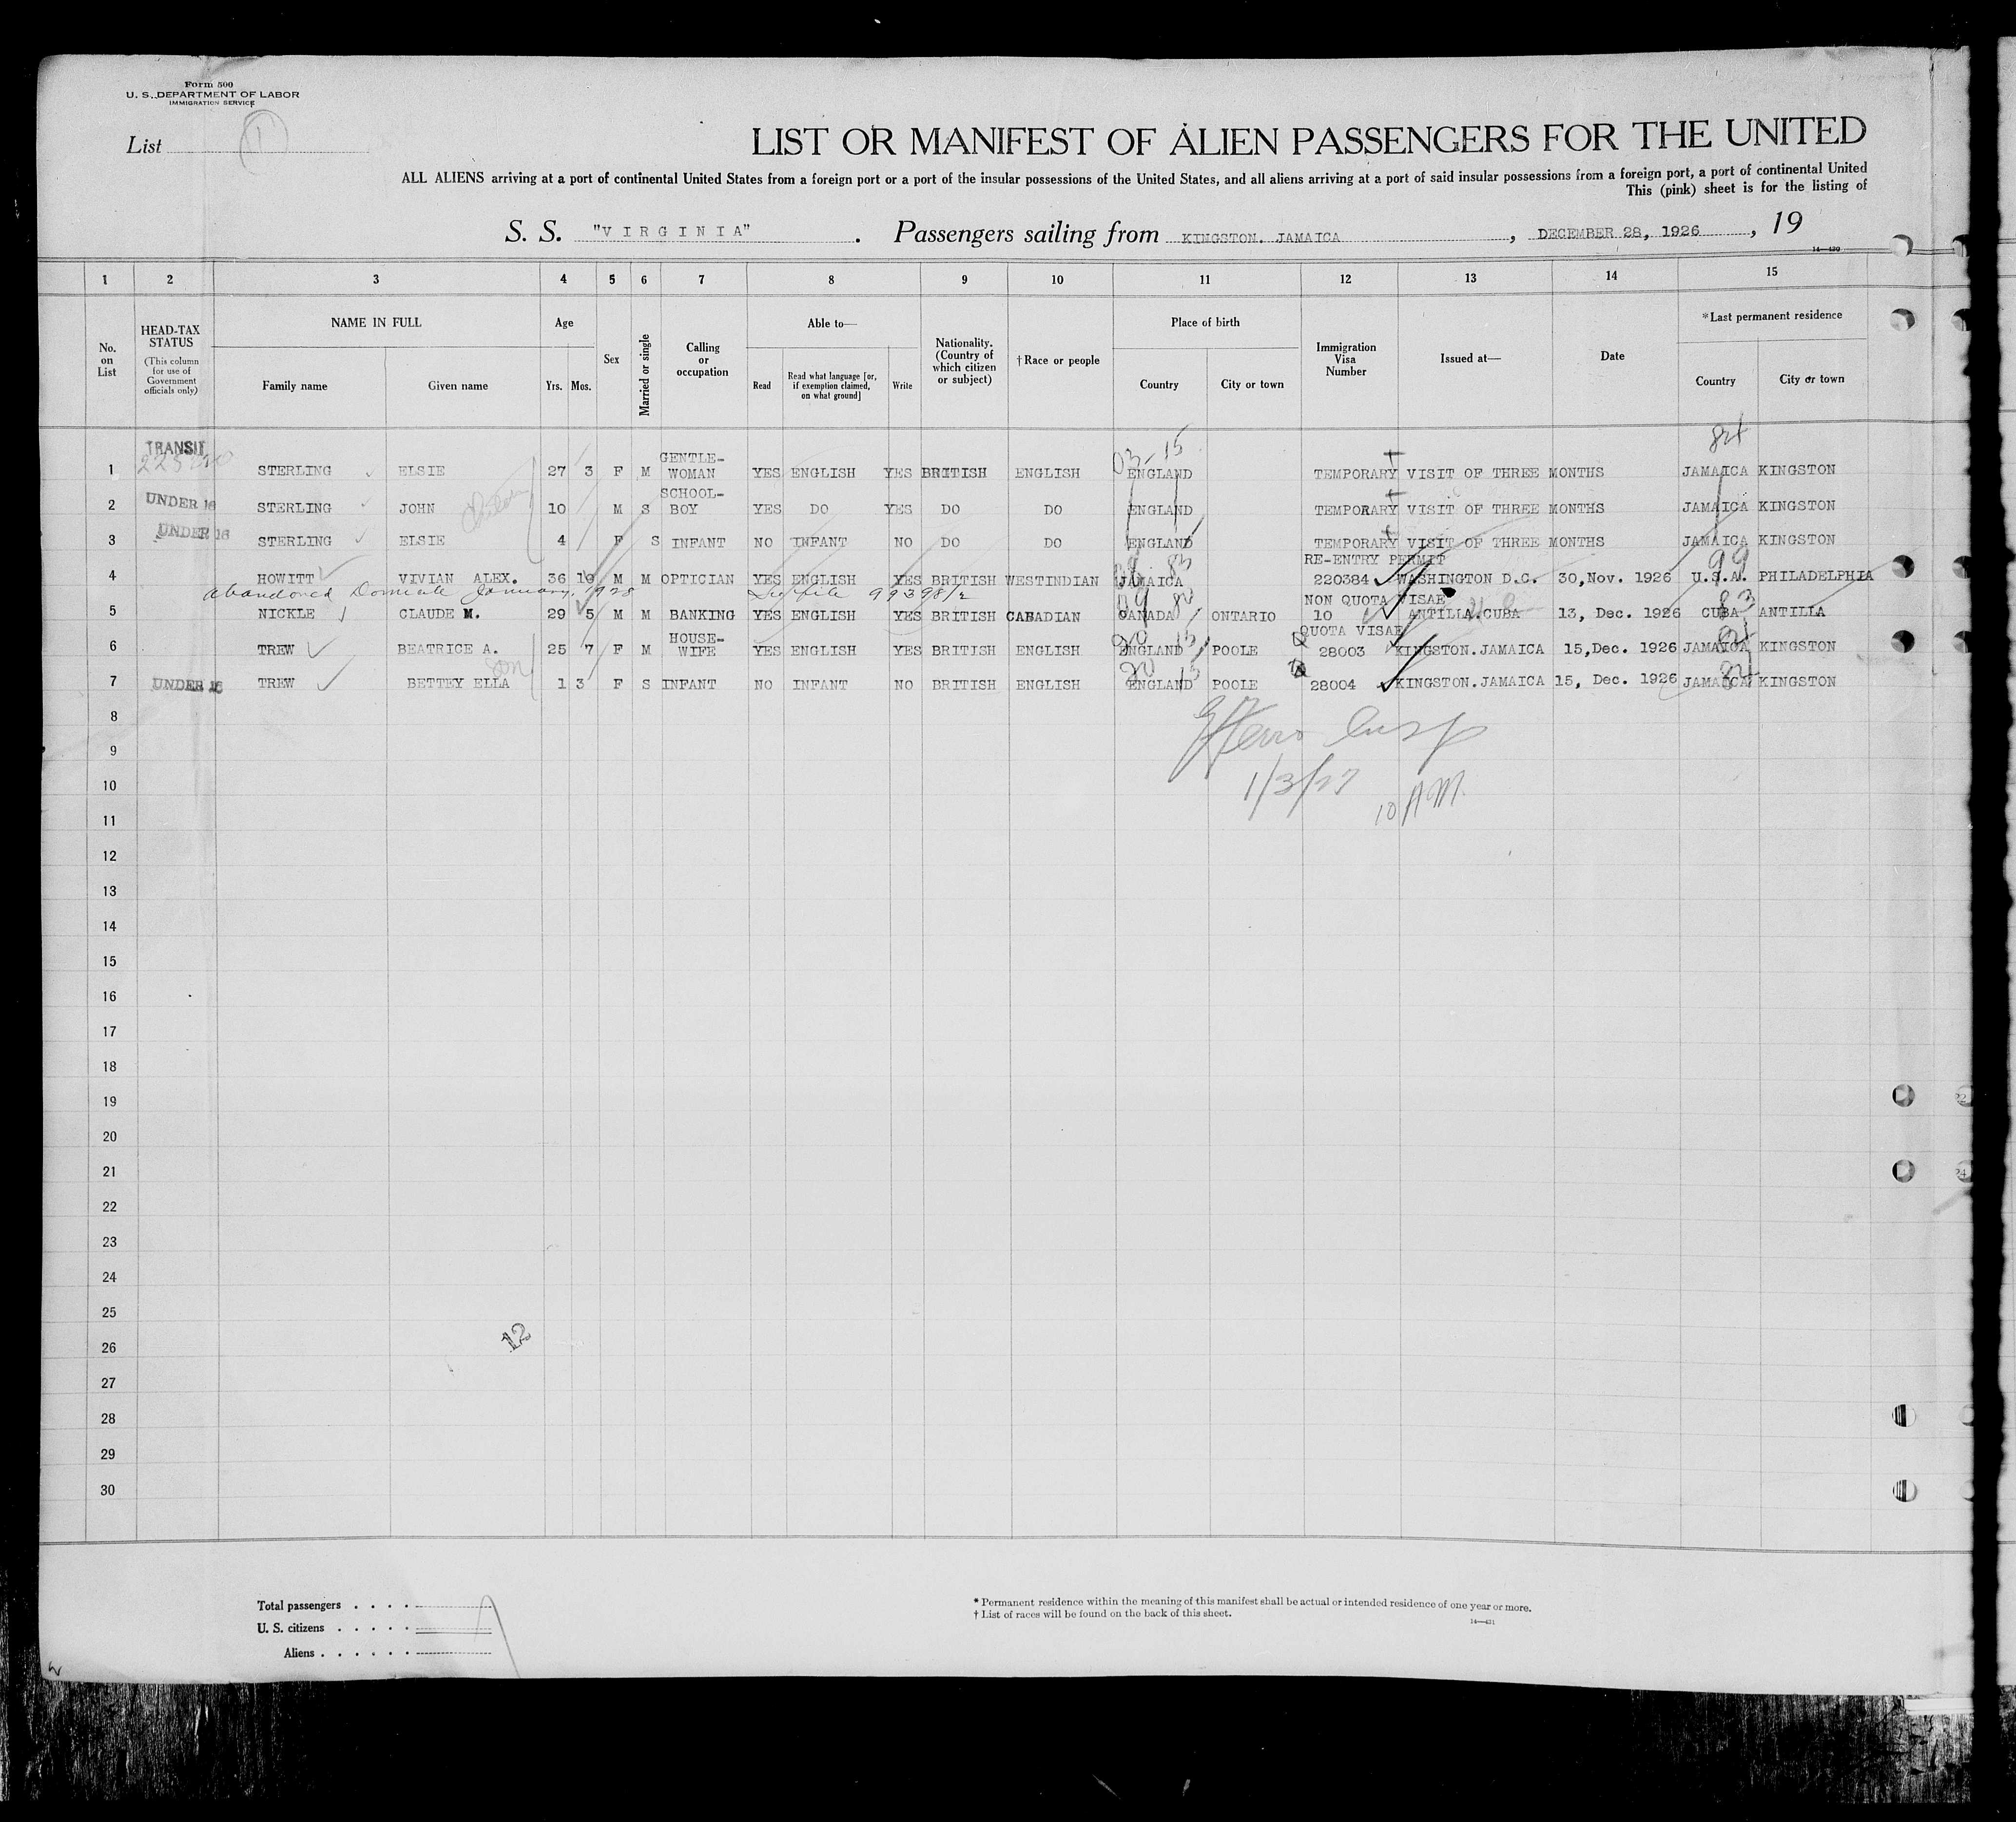 Form 500
U. S. DEPARTMENT OF LABOR
IMMIGRATION SERVICE
List 1
LIST OR MANIFEST OF ALIEN PASSENGERS FOR THE UNITED
ALL ALIENS arriving at a port of continental United States from a foreign port or a port of the insular possessions of the United States, and all aliens arriving at a port of said insular possessions from a foreign port, a port of continental United
This (pink) sheet is for the listing of
S. S. "VIRGINIA". Passengers sailing from KINGSTON. JAMAICA, DECEMBER 28, 1926, 19
14—420
1 2 3 4 5 6 7 8 9 10 11 12 13 14 15
No. on List
HEAD-TAX STATUS (This column for use of Government officials only)
NAME IN FULL
Family name
Given name
Age
Yrs. Mos.
Sex
Married or single
Calling or occupation
Able to—
Read
Read what language [or, if exemption claimed, on what ground]
Write
Nationality. (Country of which citizen or subject)
†Race or people
Place of birth
Country
City or town
Immigration Visa Number
Issued at—
Date
*Last permanent residence
Country
City or town
84
TRANSIT
03-15
1 STERLING ELSIE 27 3 F M GENTLE-WOMAN YES ENGLISH YES BRITISH ENGLISH ENGLAND TEMPORARY VISIT OF THREE MONTHS JAMAICA KINGSTON
2 UNDER 16 STERLING JOHN 10 M S SCHOOL-BOY YES DO YES DO DO ENGLAND TEMPORARY VISIT OF THREE MONTHS JAMAICA KINGSTON
3 UNDER 16 STERLING ELSIE 4 F S INFANT NO INFANT NO DO DO ENGLAND TEMPORARY VISIT OF THREE MONTHS JAMAICA KINGSTON
83 99
4 HOWITT VIVIAN ALEX. 36 10 M M OPTICIAN YES ENGLISH YES BRITISH WESTINDIAN JAMAICA RE-ENTRY PERMIT 220384 WASHINGTON D.C. 30,Nov. 1926 U.S.A. PHILADELPHIA
abandoned Domicile January, 1928 See file 99398/2
83
5 NICKLE CLAUDE M. 29 5 M M BANKING YES ENGLISH YES BRITISH CANADIAN CANADA ONTARIO NON QUOTA VISAE 10 ANTILLA.CUBA 13, Dec. 1926 CUBA ANTILLA
6 TREW BEATRICE A. 25 7 F M HOUSE-WIFE YES ENGLISH YES BRITISH ENGLISH ENGLAND POOLE QUOTA VISAE 28003 KINGSTON.JAMAICA 15,Dec. 1926 JAMAICA KINGSTON
7 UNDER 16 TREW BETTEY ELLA 1 3 F S INFANT NO INFANT NO BRITISH ENGLISH ENGLAND POOLE 28004 KINGSTON.JAMAICA 15, Dec. 1926 JAMAICA KINGSTON
8
Insp
9
1/3/27
10
10 AM.
11
12
13
14
15
16
17
18
19
20
21
22
23
24
25
12
26
27
28
29
30
Total passengers
U. S. citizens
Aliens
* Permanent residence within the meaning of this manifest shall be actual or intended residence of one year or more.
† List of races will be found on the back of this sheet.
14—421